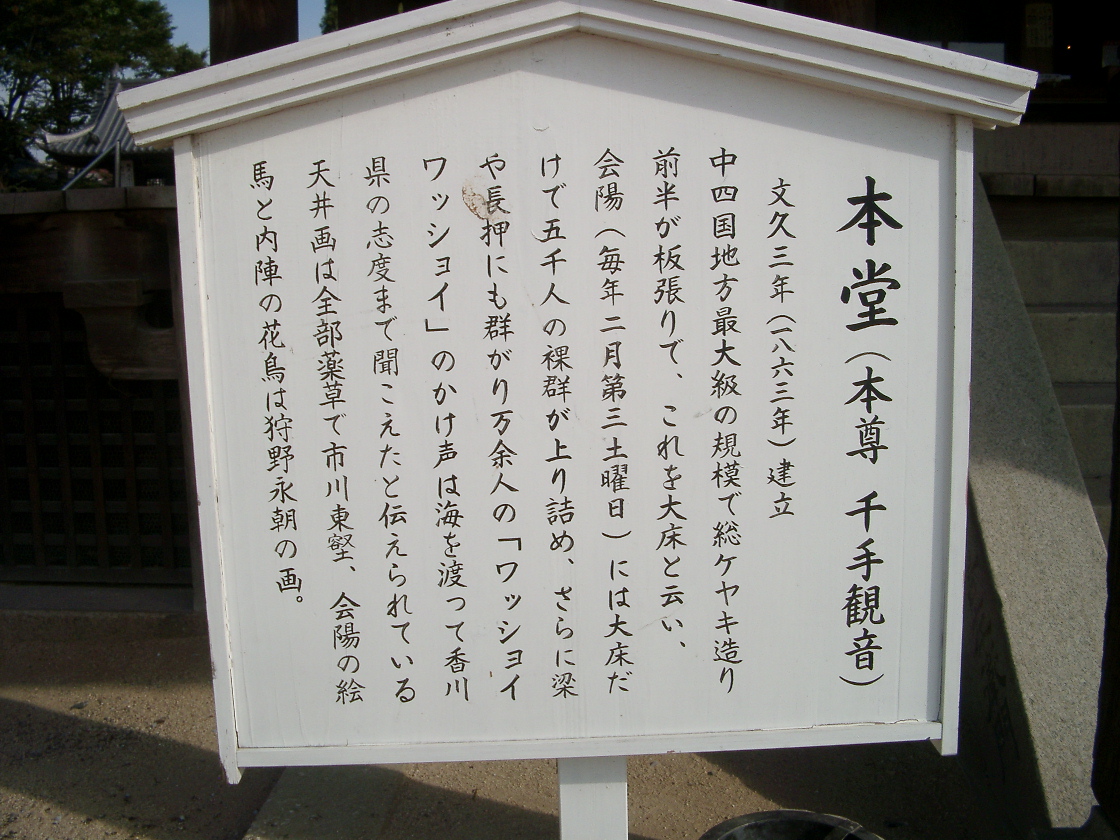 本堂（本尊 千手観音）
文久三年（一八六三年）建立
中四国地方最大級の規模で総ケヤキ造り
前半が板張りで、これを大床と云い、
会陽（毎年二月第三土曜日）には大床だ
けで五千人の裸群が上り詰め、さらに梁
や長押にも群がり万余人の「ワッショイ
ワッショイ」のかけ声は海を渡って香川
県の志度まで聞こえたと伝えられている
天井画は全部薬草で市川東壑、会陽の絵
馬と内陣の花鳥は狩野永朝の画。